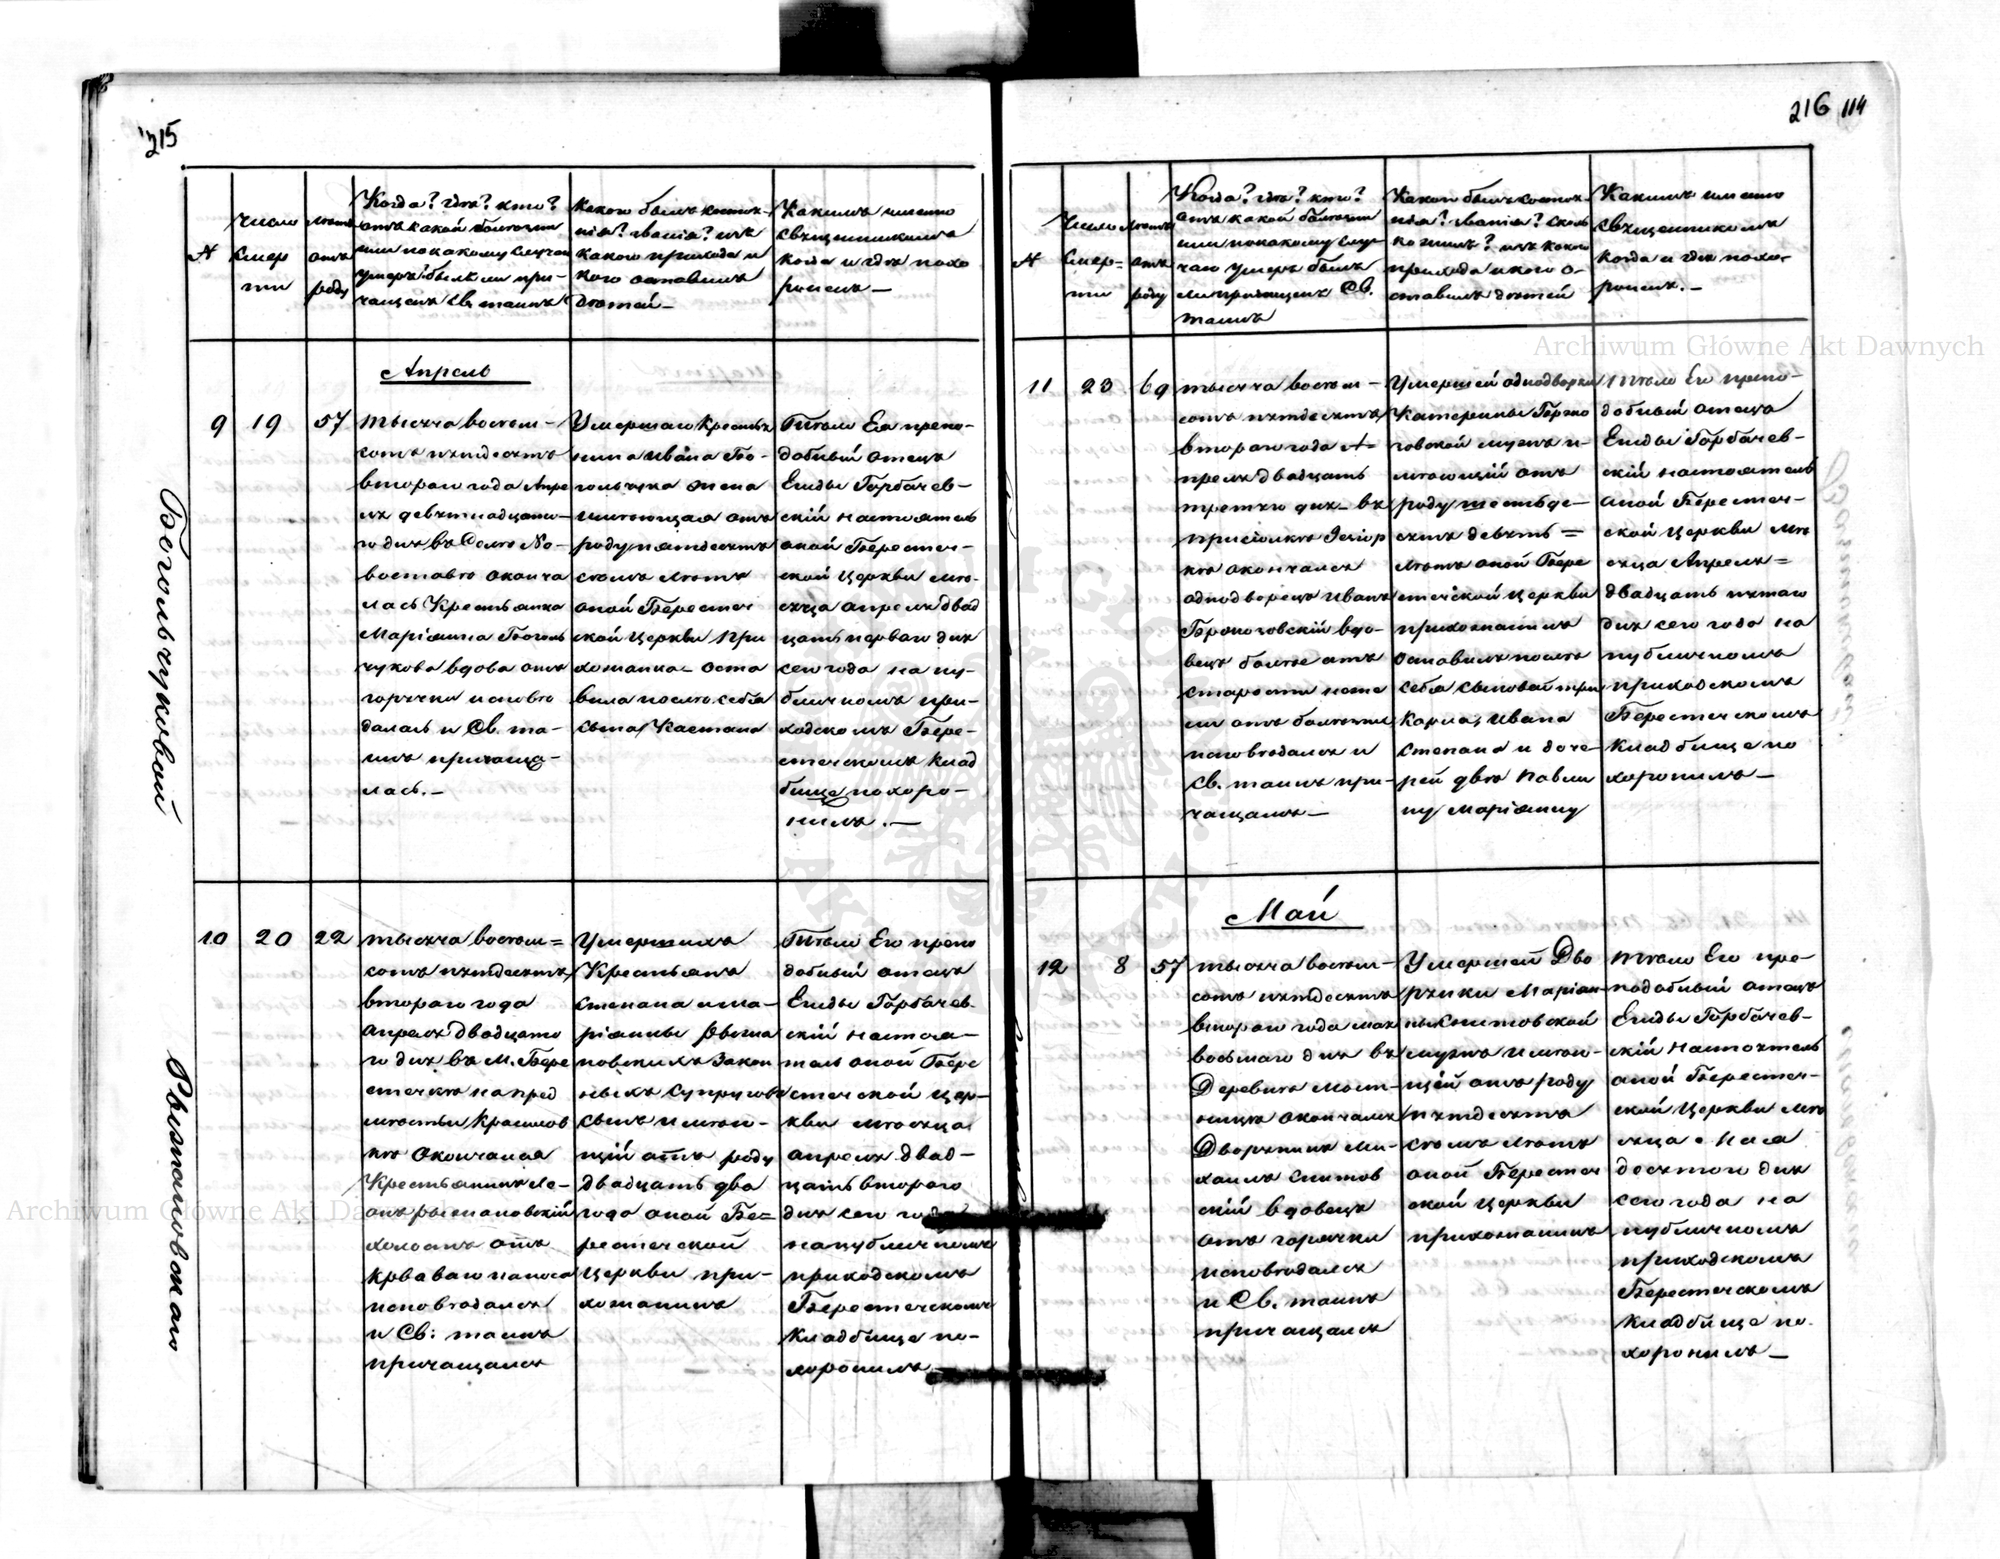 215
Число
Смер
ти
Лета
отъ
роду
Когда? гдѣ? кто?
отъ какой болезни
или по какому случаю
умеръ? былъ ли при-
чащенъ Св. таинъ
Какого былъ состоя-
нія? званія? изъ
какого прихода и
кого оставилъ
дѣтей —
Какимъ именно
священникомъ
когда и гдѣ похо
роненъ —
Апрель
9
19
57
тысяча восѣм-
сотъ пятдесятъ
втораго года Апре
ля девятнадцата-
го дня въ Селѣ Но-
воставѣ сконча
лась Крестьянка
Маріанна Боголь
чукова вдова отъ
горячки исповѣ
далась и Св. та-
инъ прича­ща-
лась. —
Умершаго Крестья
нина Ивана Бо-
гольчука жена
имѣющая отъ
роду пятдесятъ
сѣмъ лѣтъ
оной Берестеч
ской Церкви при
хожанка — оста
вила послѣ себя
сына Каетана
Тѣло Ея препо-
добный отецъ
Егиды Горбачев-
скій настоятель
оной Берестеч-
ской Церкви мѣ-
сяца апреля двад
цать перваго дня
сего года на пу-
бличномъ при-
ходскомъ Бере-
стечскомъ клад
бище похоро-
нилъ. —
10
20
22
тысяча восѣм=
сотъ пятдесятъ
втораго года
апреля двадцата
го дня въ М. Бере
стечкѣ на пред
мѣстьи
кѣ скончался
Крестьянинъ Ле-
онъ Рыжановскій
холостъ отъ
кроваваго поноса
исповѣдался
и Св: таинъ
причащался
Умершихъ
Крестьянъ
Степана и Ма-
ріанны Рыжа
новскихъ Закон
ныхъ Супруговъ
сынъ имѣю-
щій отъ роду
двадцать два
года оной Бе=
рестечской
Церкви при-
хожанинъ
Тѣло Его препо
добный отецъ
Егиды Горбачев-
скій настоя-
тель оной Бере
стечской Цер-
кви мѣсяца
апреля двад-
цать втораго
дня сего года
на публичномъ
приходскомъ
Берестечскомъ
кладбище по-
хоронилъ —
Богольчуковой
216 114
Число
Смер=
ти
Лѣтъ
отъ
роду
Когда? гдѣ? кто?
отъ какой болезни
или по какому слу-
чаю умеръ былъ
ли причащенъ Св.
таинъ
Какого былъ состоя-
нія? званія? сколь
ко жилъ? изъ какого
прихода и кого о-
ставилъ дѣтей
Какимъ именно
Священникомъ
когда и гдѣ похо-
роненъ. —
11
23
69
тысяча восѣм-
сотъ пятдесятъ
втораго года А-
преля двадцать
третяго дня въ
кѣ скончался
однодворецъ Иванъ
вдо-
вецъ болѣе отъ
старости неже
ли отъ болезни
исповѣдался и
Св. таинъ при-
чащался —
Умершей однодворки
Катерины
мужъ и-
мѣющій отъ
роду шестьде-
сятъ девять =
лѣтъ оной Бере
стечской Церкви
прихожанинъ
Оставилъ послѣ
себя сыновей три
Карла, Ивана
Степана и доче-
рей двѣ Павли
ну Маріанну
Тѣло Его препо-
добный отецъ
Егиды Горбачев-
скій настоятель
оной Берестеч-
ской Церкви мѣ
сяца Апреля =
двадцать пятаго
дня сего года на
публичномъ
приходскомъ
Берестечскомъ
кладбище по
хоронилъ —
Май
12
8
57
тысяча восѣм-
сотъ пятдесятъ
втораго года мая
восьмаго дня въ
Деревнѣ
скончался
Дворянинъ Ми-
хаилъ Снитов
скій вдовецъ
отъ горячки
исповѣдался
и Св. таинъ
причащался
Умершей Дво
рянки Маріан
ны Снитовской
мужъ имѣю-
щій отъ роду
пятдесятъ
сѣмъ лѣтъ
оной Берестеч
ской Церкви
прихожанинъ
Тѣло Его пре-
подобный отецъ
Егиды Горбачев-
скій Настоятель
оной Берестеч-
ской Церкви мѣ
сяца Мая
десятого дня
сего года на
публичномъ
приходскомъ
Берестечскомъ
кладбище по-
хоронилъ —
Archiwum Główne Akt Dawnych
Archiwum Główne Akt Dawnych